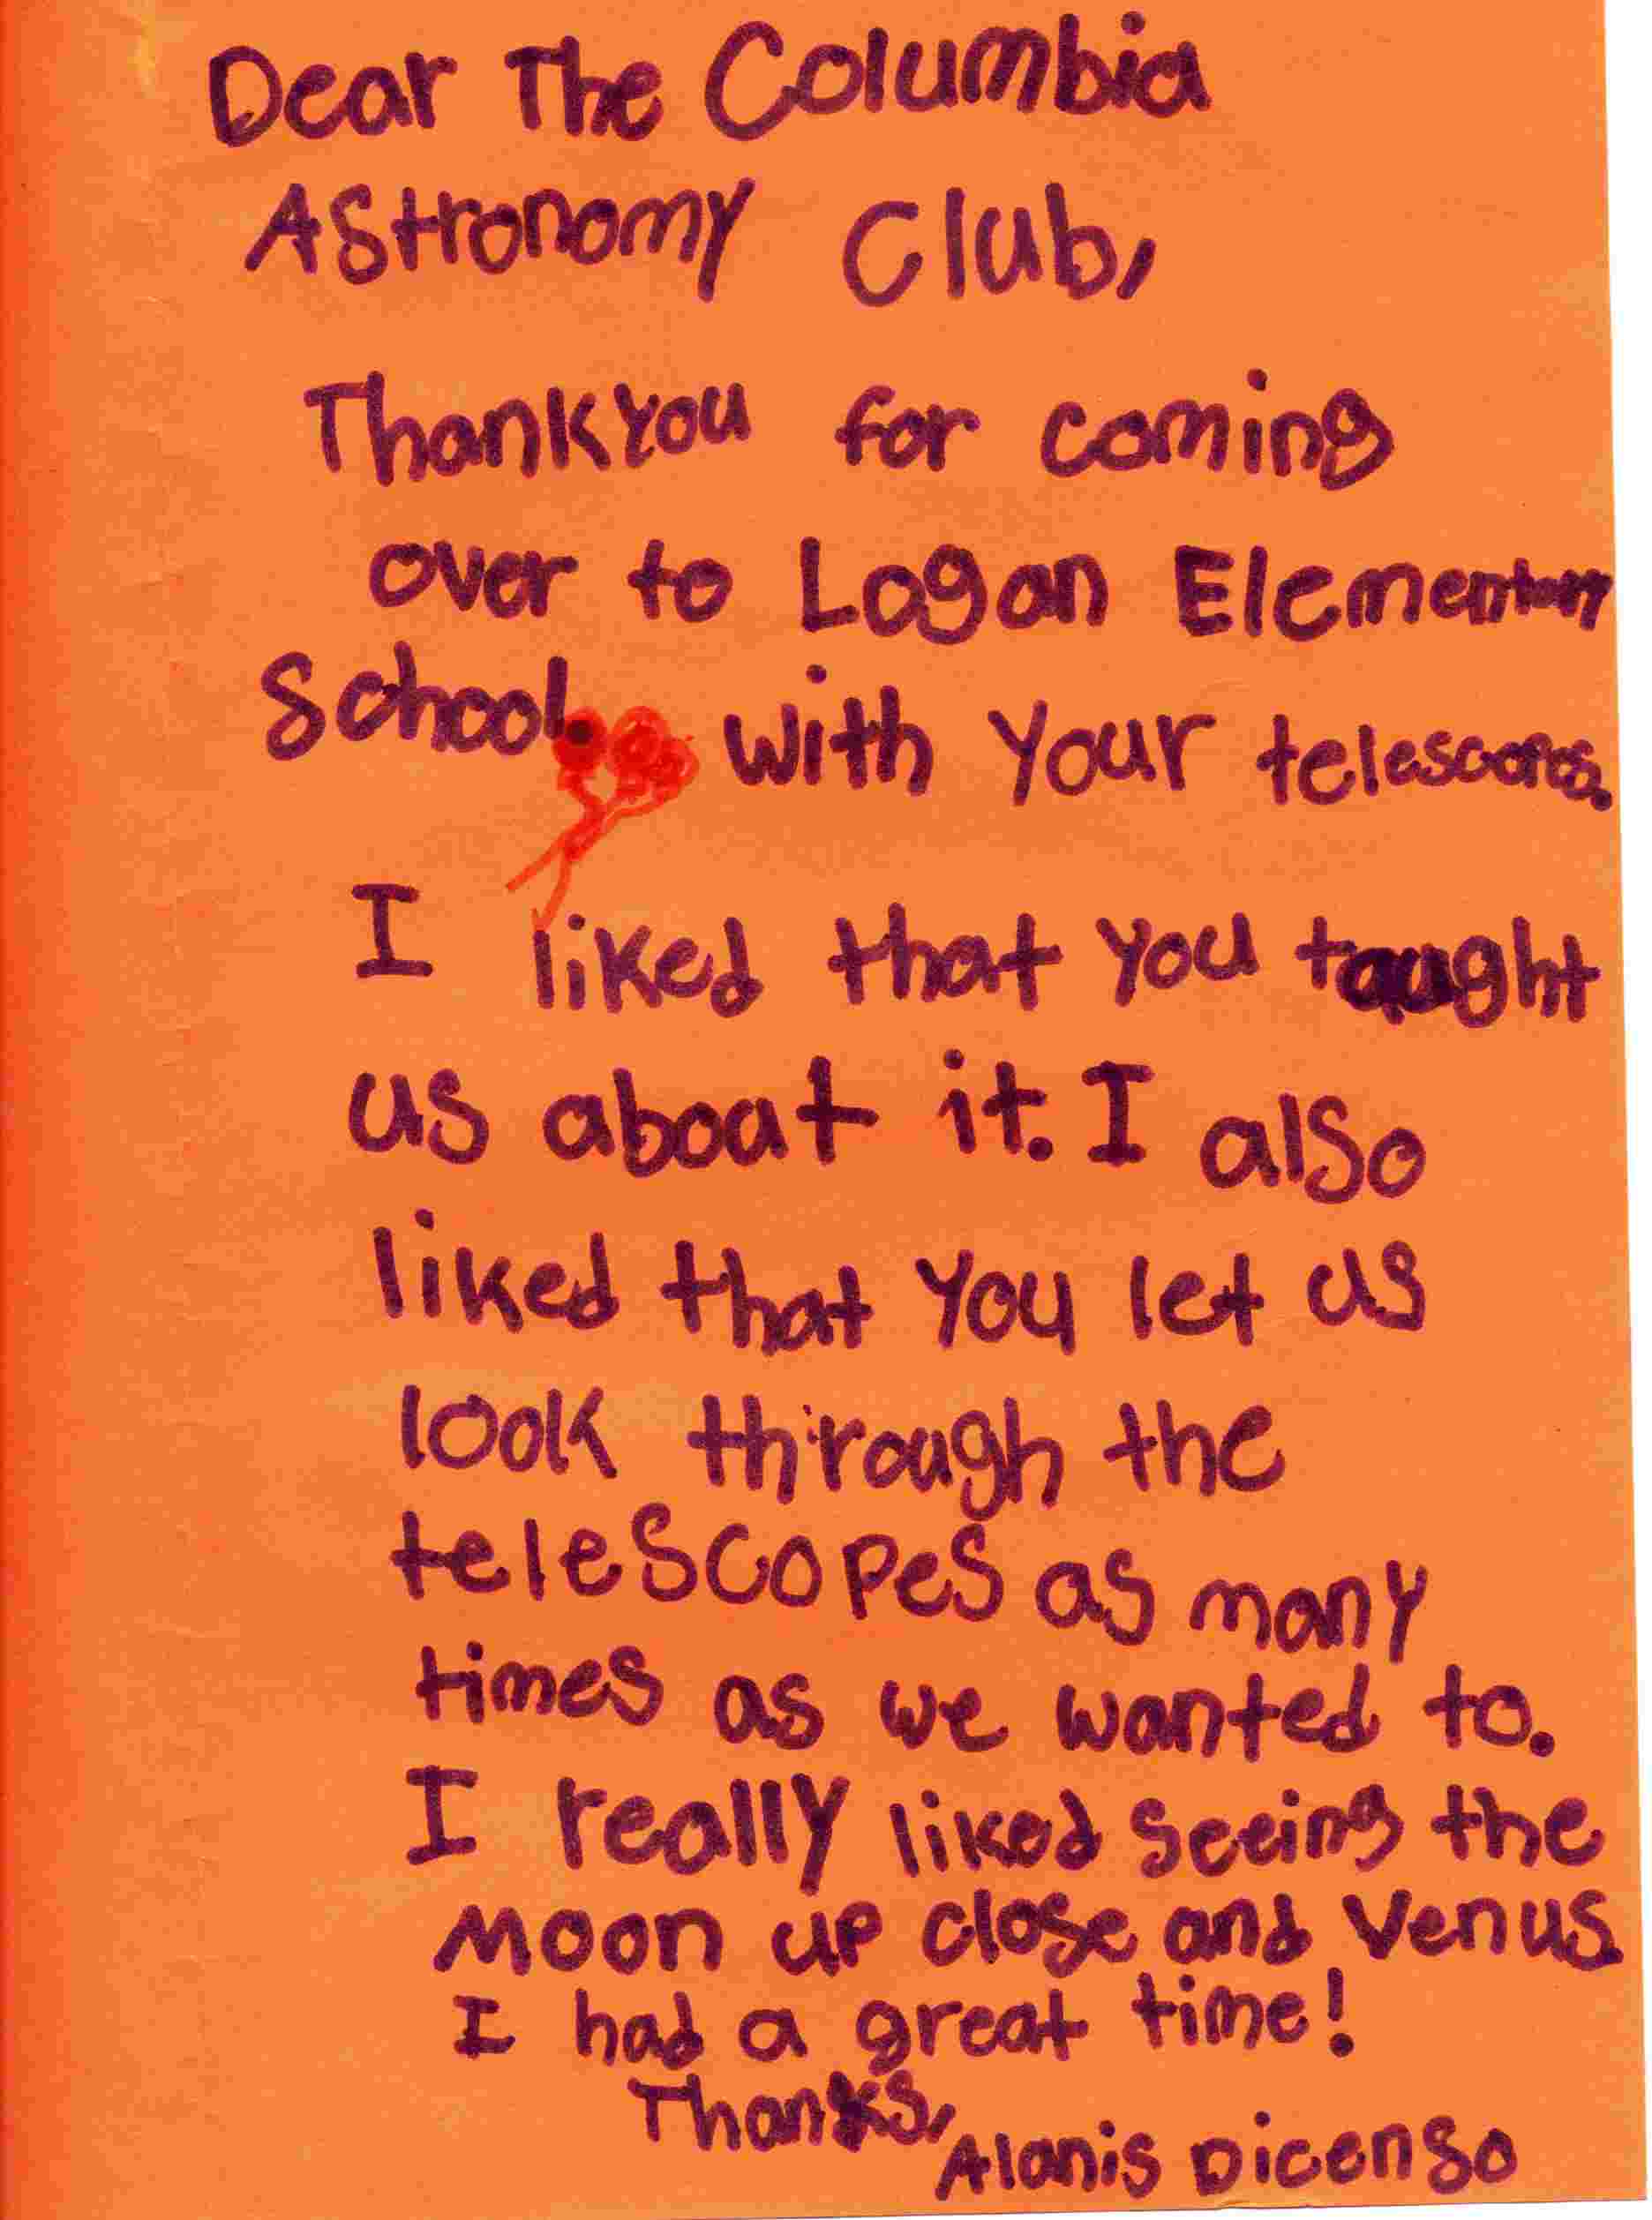 Dear The Columbia
Astronomy Club,
Thankyou for coming
over to Logan Elementary
School. with your telescopes.
I liked that you taught
us about it. I also
liked that you let us
look through the
telescopes as many
times as we wanted to.
I really liked seeing the
Moon up close and Venus.
I had a great time!
Thanks,
Alanis Dicenso